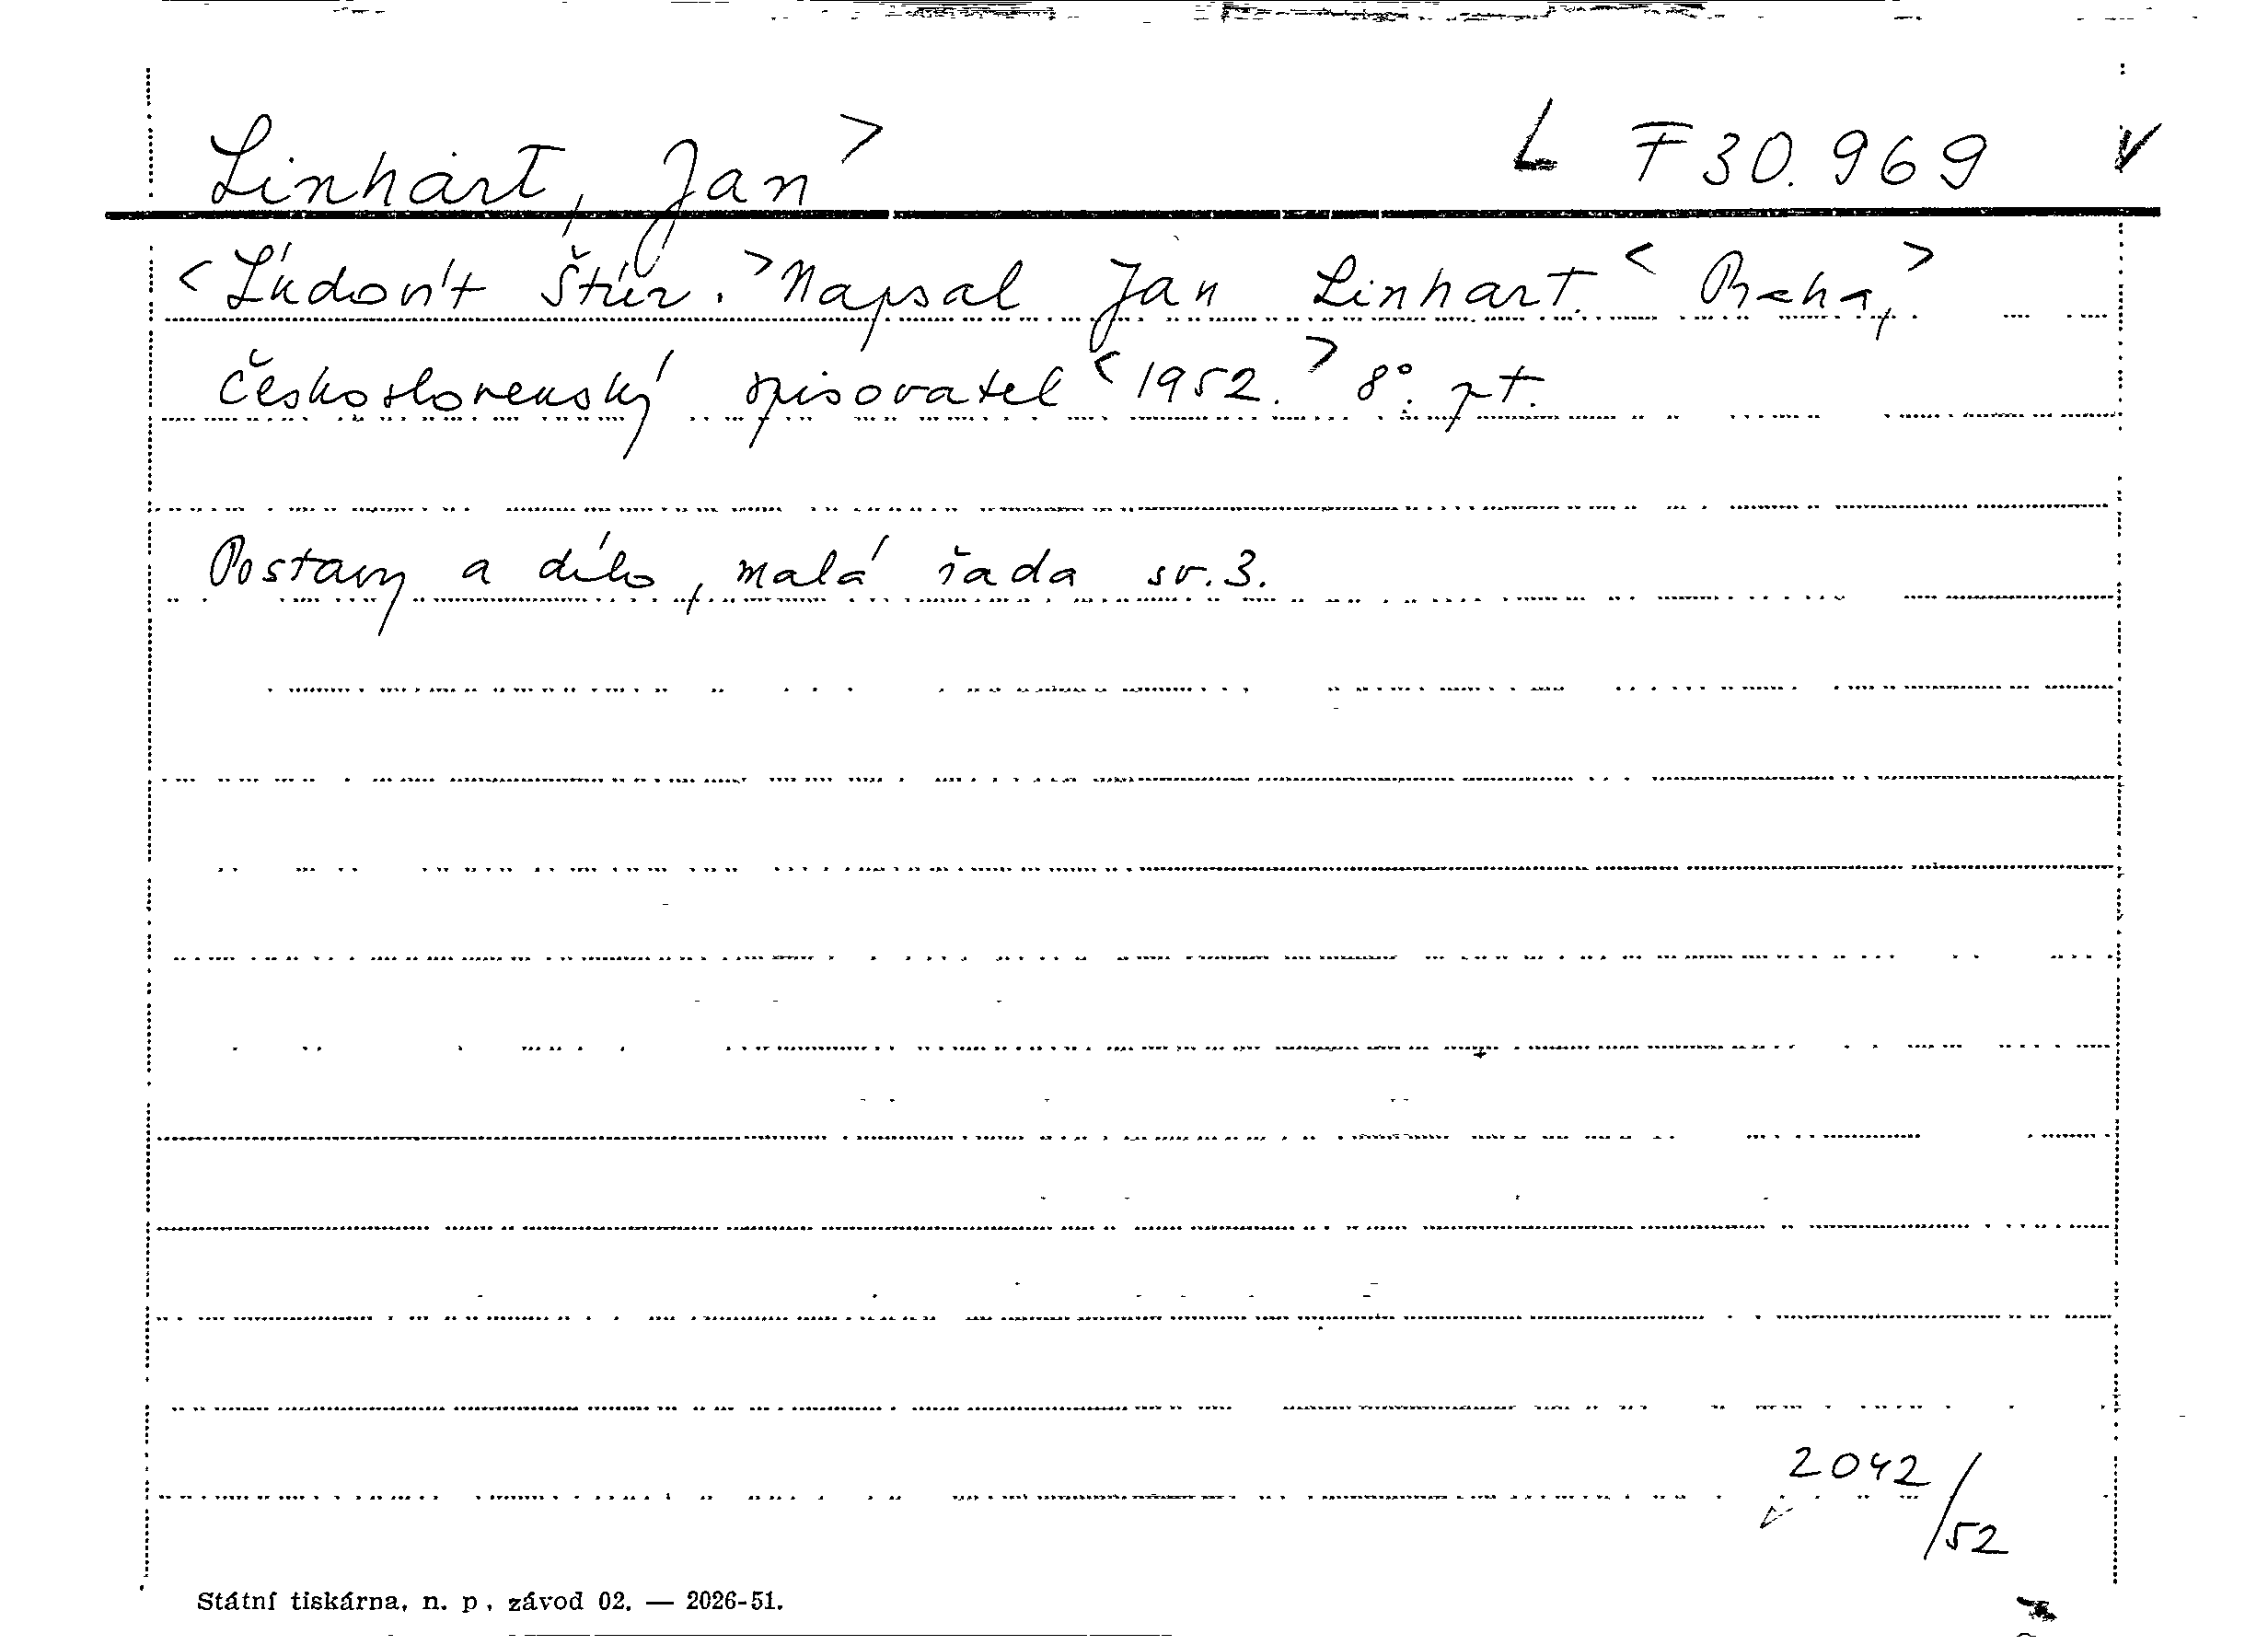 Linhart, Jan > L F 30.969 v
< Ľudovít Štúr. > Napsal Jan Linhart. < Praha, >
Československý spisovatel < 1952. > 8°. pt.
Postavy a dílo, malá řada sv. 3.
2042/52
Státní tiskárna, n. p., závod 02. — 2026-51.